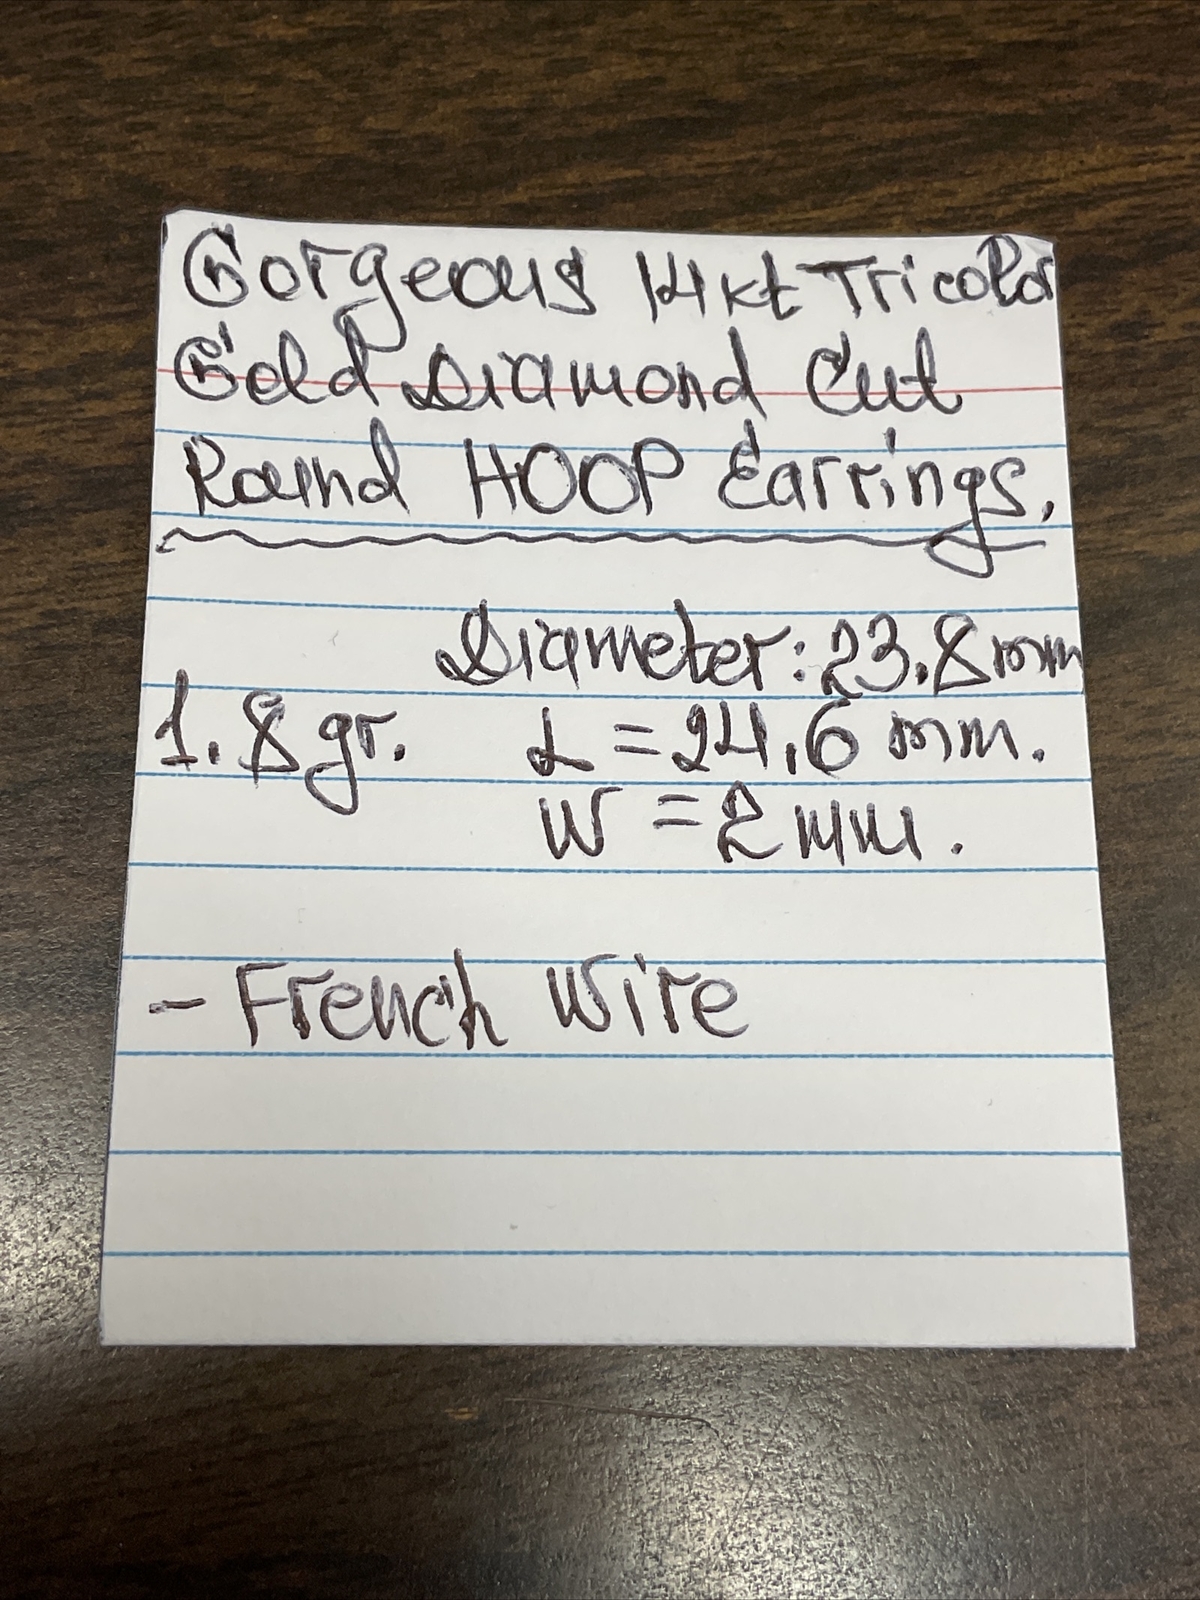 Gorgeous 14kt Tricolor
Gold Diamond Cut
Round HOOP Earrings.
Diameter: 23.8mm
1.8gr. L = 24.6 mm.
W = 2mm.
- French Wire